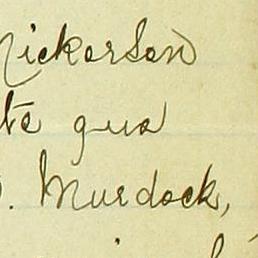 Nickerson
te gua
. Murdock,